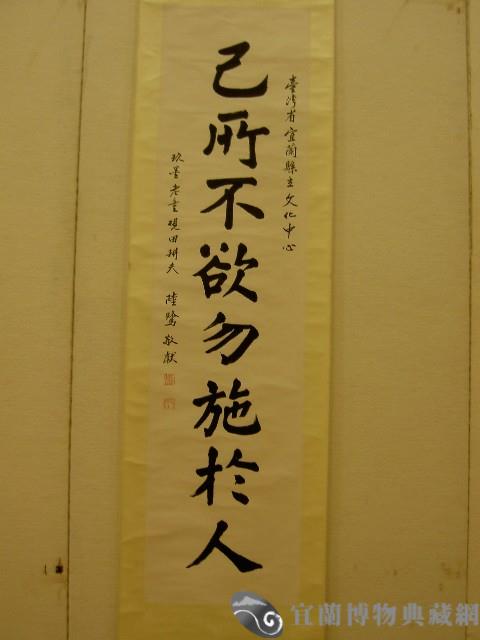 臺灣省宜蘭縣立文化中心
己所不欲勿施於人
玖墨老童硯田耕夫 陸鷺敬獻
宜蘭博物典藏網